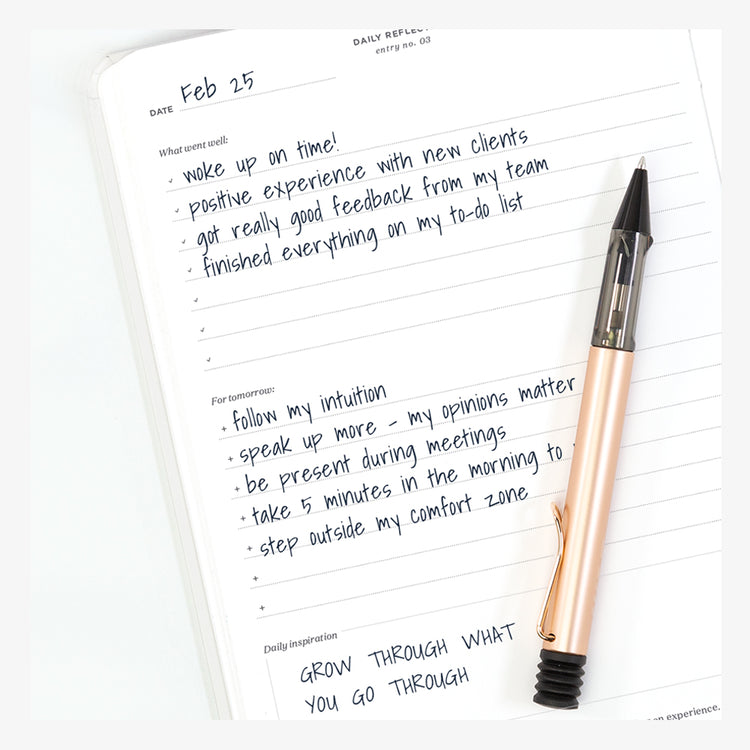 DAILY
entry no. 03
DATE Feb 25
What went well:
woke up on time!
positive experience with new clients
got really good feedback from my team
finished everything on my to-do list
For tomorrow:
+ follow my intuition
+ speak up more - my opinions matter
+ be present during meetings
+ take 5 minutes in the morning to
+ step outside my comfort zone
+
+
Daily inspiration
GROW THROUGH WHAT
YOU GO THROUGH
experience.